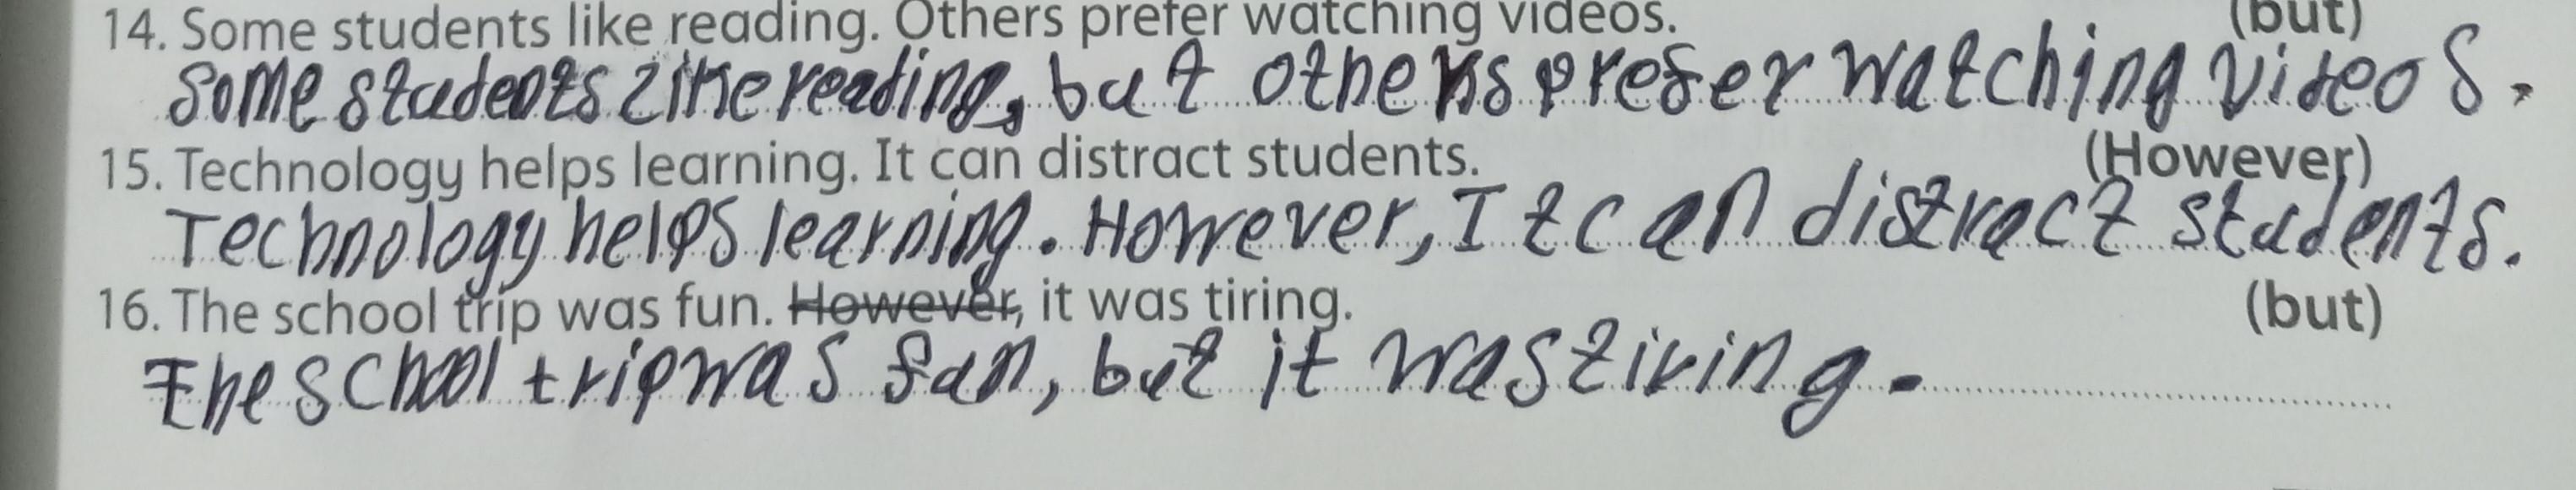 14. Some students like reading. Others prefer watching videos. (but)
Some students like reading, but others prefer watching videos.
15. Technology helps learning. It can distract students. (However)
Technology helps learning. However, It can distract students.
16. The school trip was fun. However, it was tiring. (but)
The school trip was fun, but it was tiring.